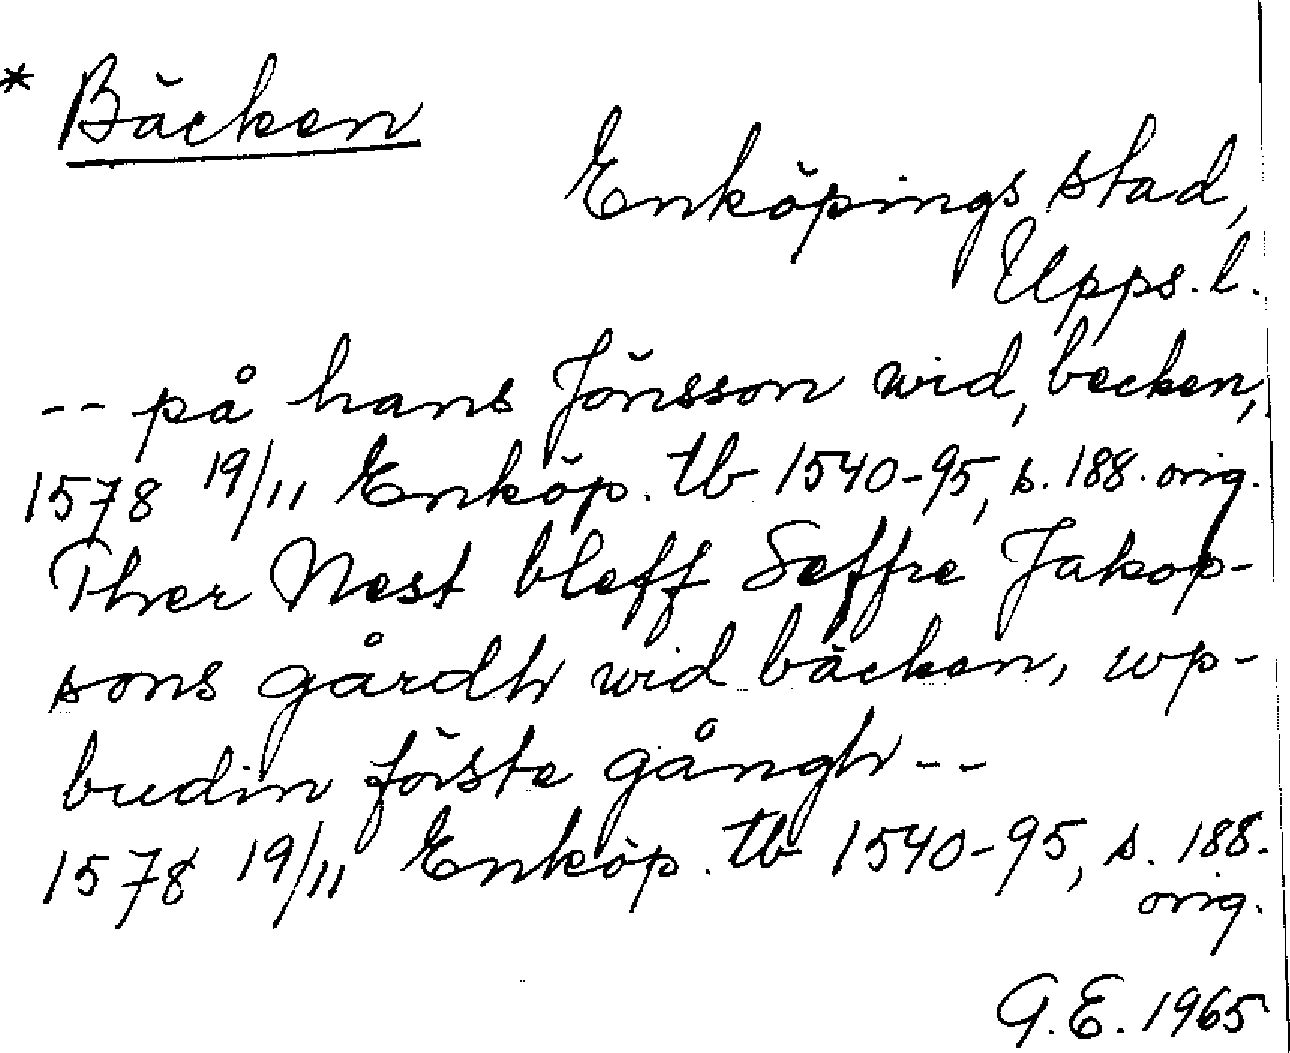 * Bäcken
Enköpings stad,
Upps. l.
-- på hans Jönsson wid, becken,
1578 19/11 Enköp. tb 1540-95, s. 188. orig.
Ther Nest bleff Seffre Jakop-
sons gårdh wid bäcken, wp-
budin förste gångh --
1578 19/11 Enköp. tb 1540-95, s. 188.
orig.
G.E. 1965